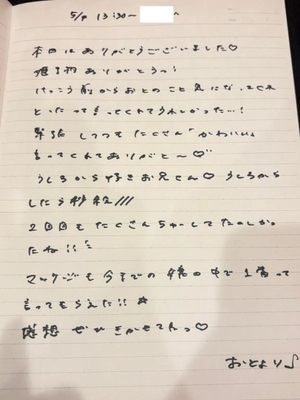 5/9 13:30〜
本日はありがとうございました♡
推し物ありがとうっ!
けっこう前からおとのこと気になってくれ
とったって言ってくれてうれしかった…!
緊張しつつもたくさん"かわいい"
言ってくれてありがと〜♡
うしろから好きお兄さん♡ うしろから
したら秒殺///
2回目もたくさんちゅーしてたのしかっ
たね!!
マッサージも今までの嬢の中で1番って
言ってもらえた!! ☆
感想ぜひきかせてんっ♡
おとより♪